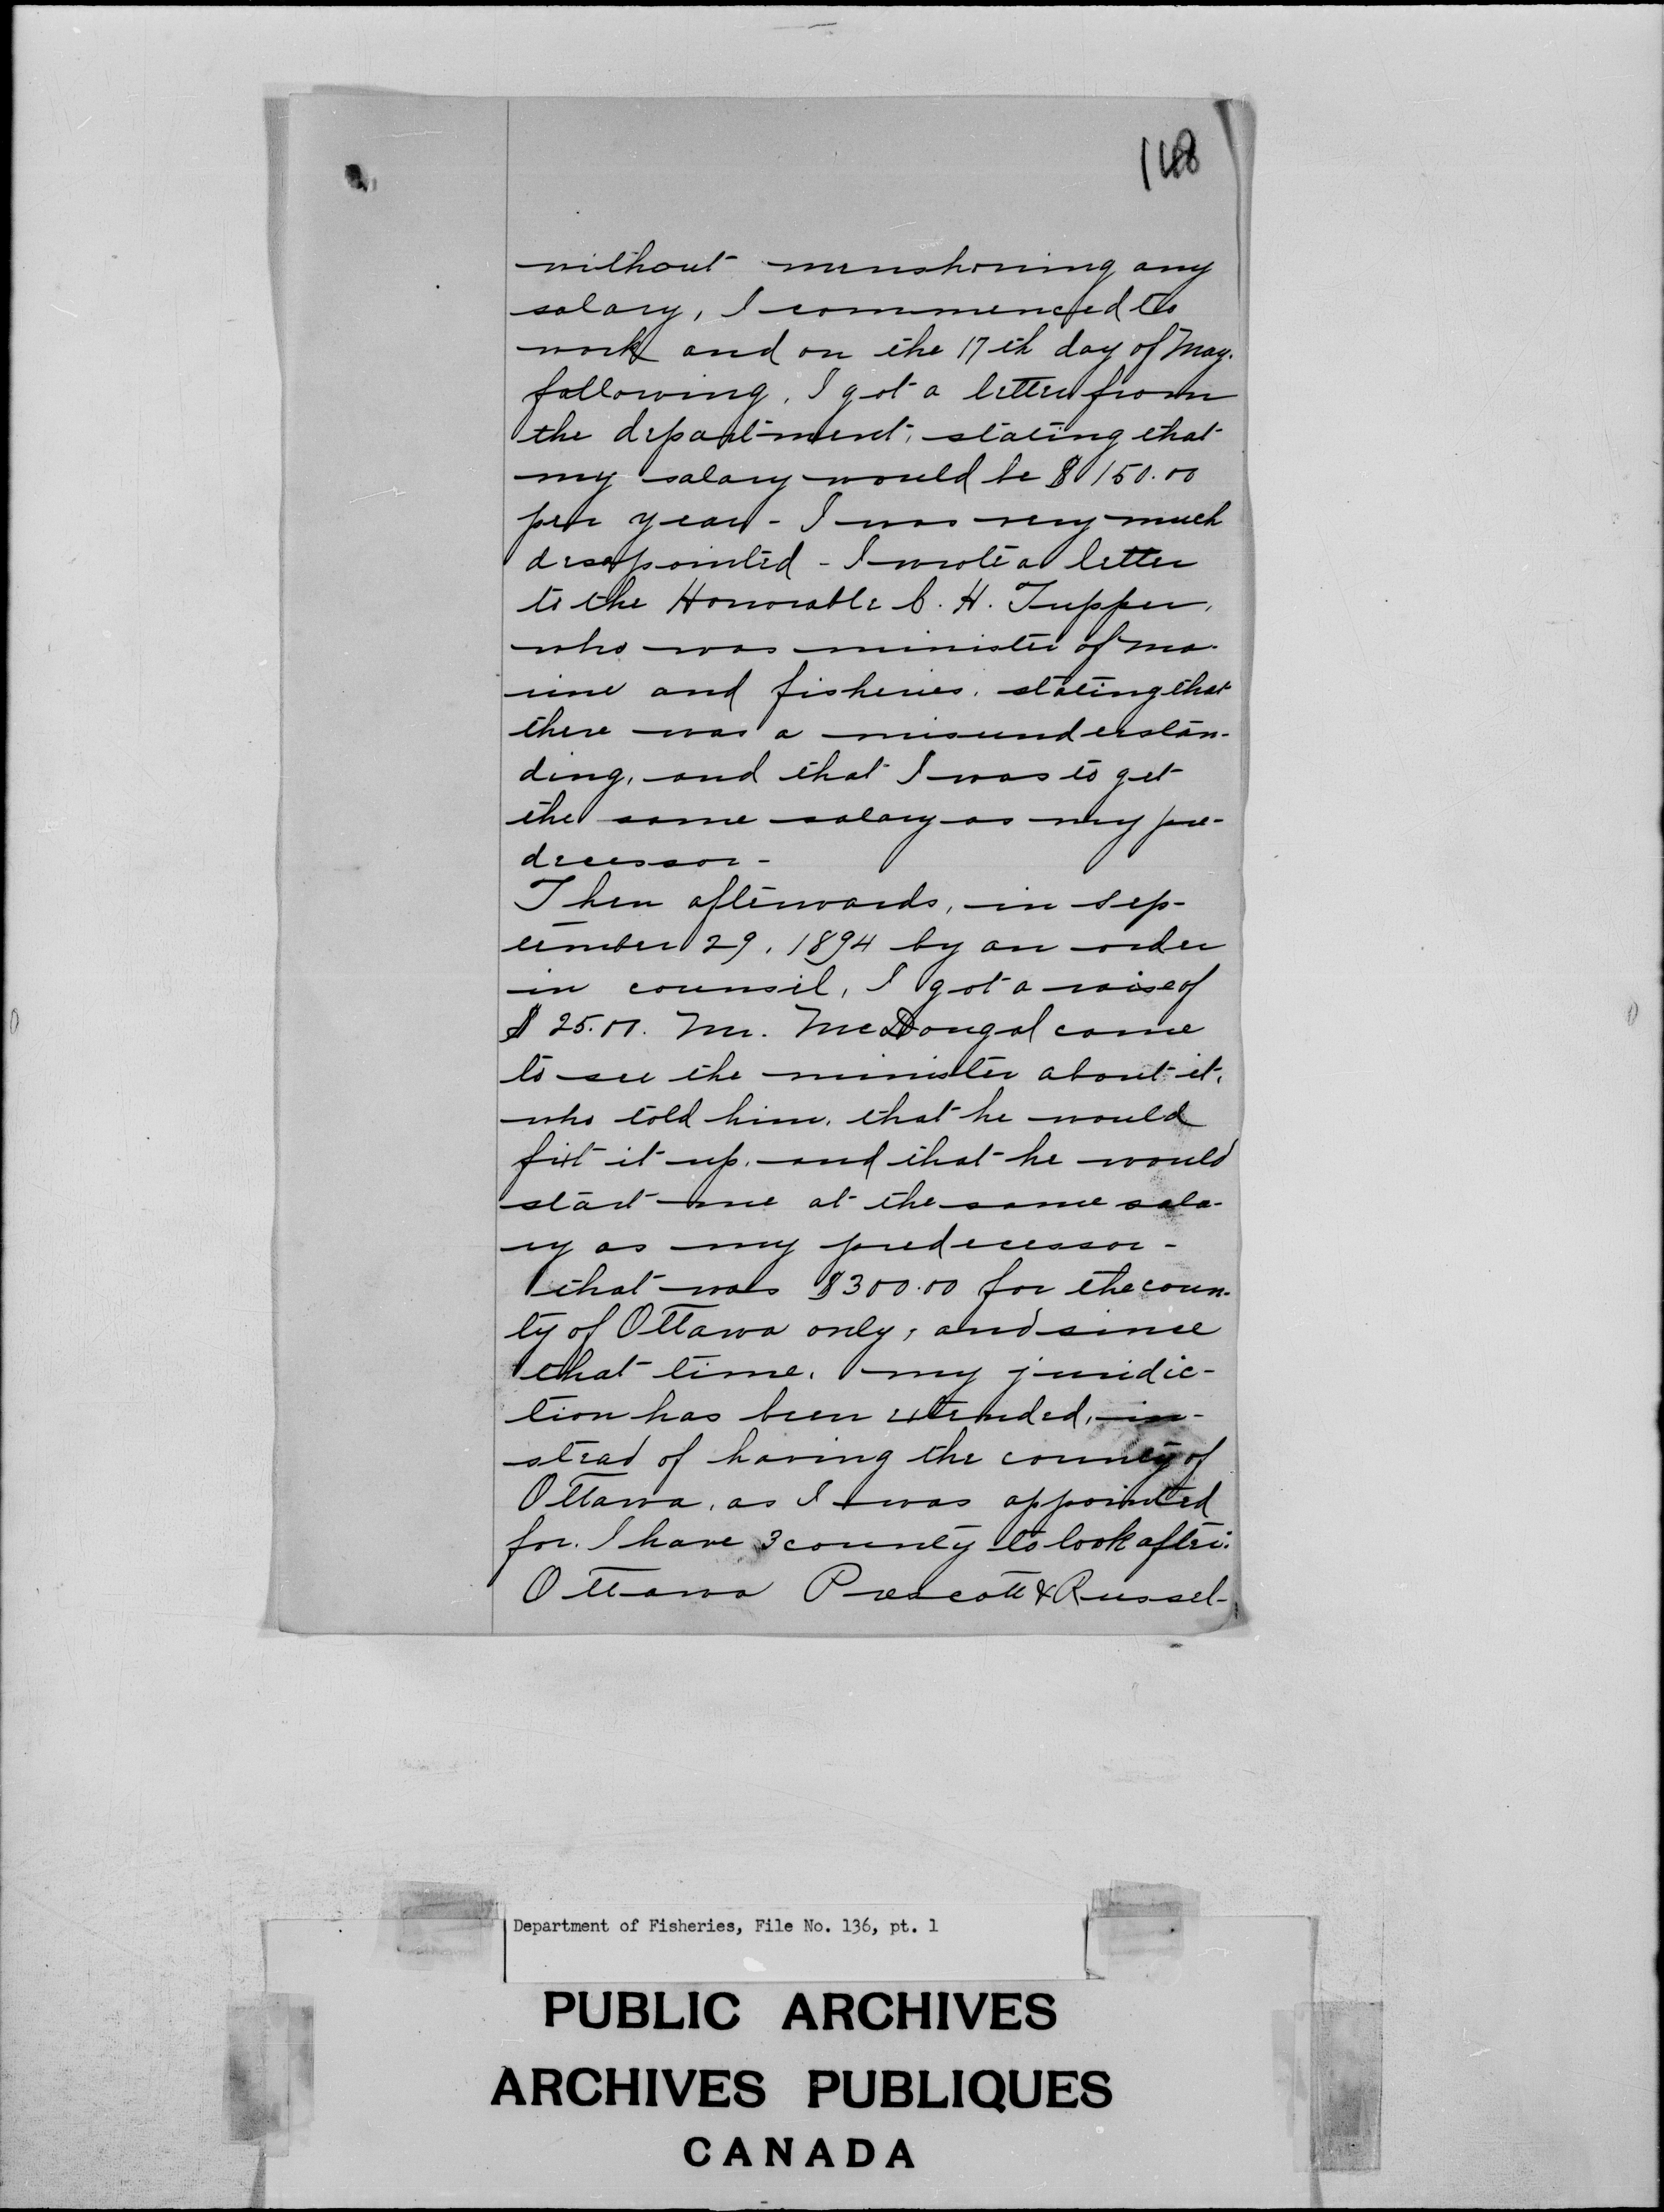 148
without menshoning any
salary, I commenced to
work and on the 17th day of May.
following, I got a letter from
the department, stating that
my salary would be $150.00
per year - I was very much
desapointed - I wrote a letter
to the Honorable C. H. Tupper,
who was minister of ma-
rine and fisheries, stating that
there was a misunderstan-
ding, and that I was to get
the same salary as my pre-
decessor -
Then afterwards, in sep-
tember 29, 1894 by an order
in counsil, I got a raise of
$25.00. Mr. McDougal came
to see the minister about it,
who told him, that he would
fixt it up, and that he would
start me at the same sala-
ry as my predecessor -
that was $300.00 for the coun-
ty of Ottawa only, and since
that time, my juridic-
tion has been extended, in-
stead of having the county of
Ottawa, as I was appointed
for. I have 3 county to look after:
Ottawa Prescott & Russel-
Department of Fisheries, File No. 136, pt. 1
PUBLIC ARCHIVES
ARCHIVES PUBLIQUES
CANADA